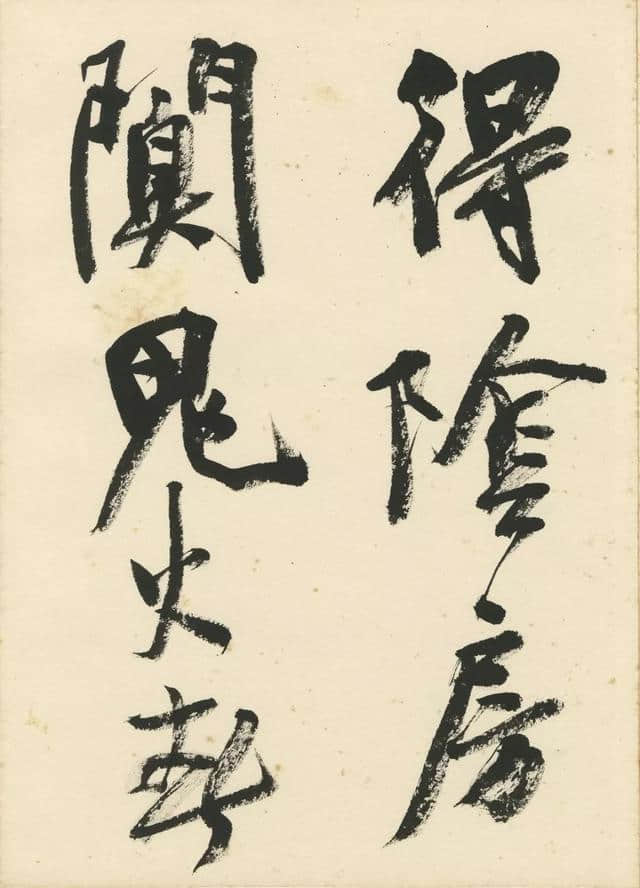 得陰房
闃鬼火春